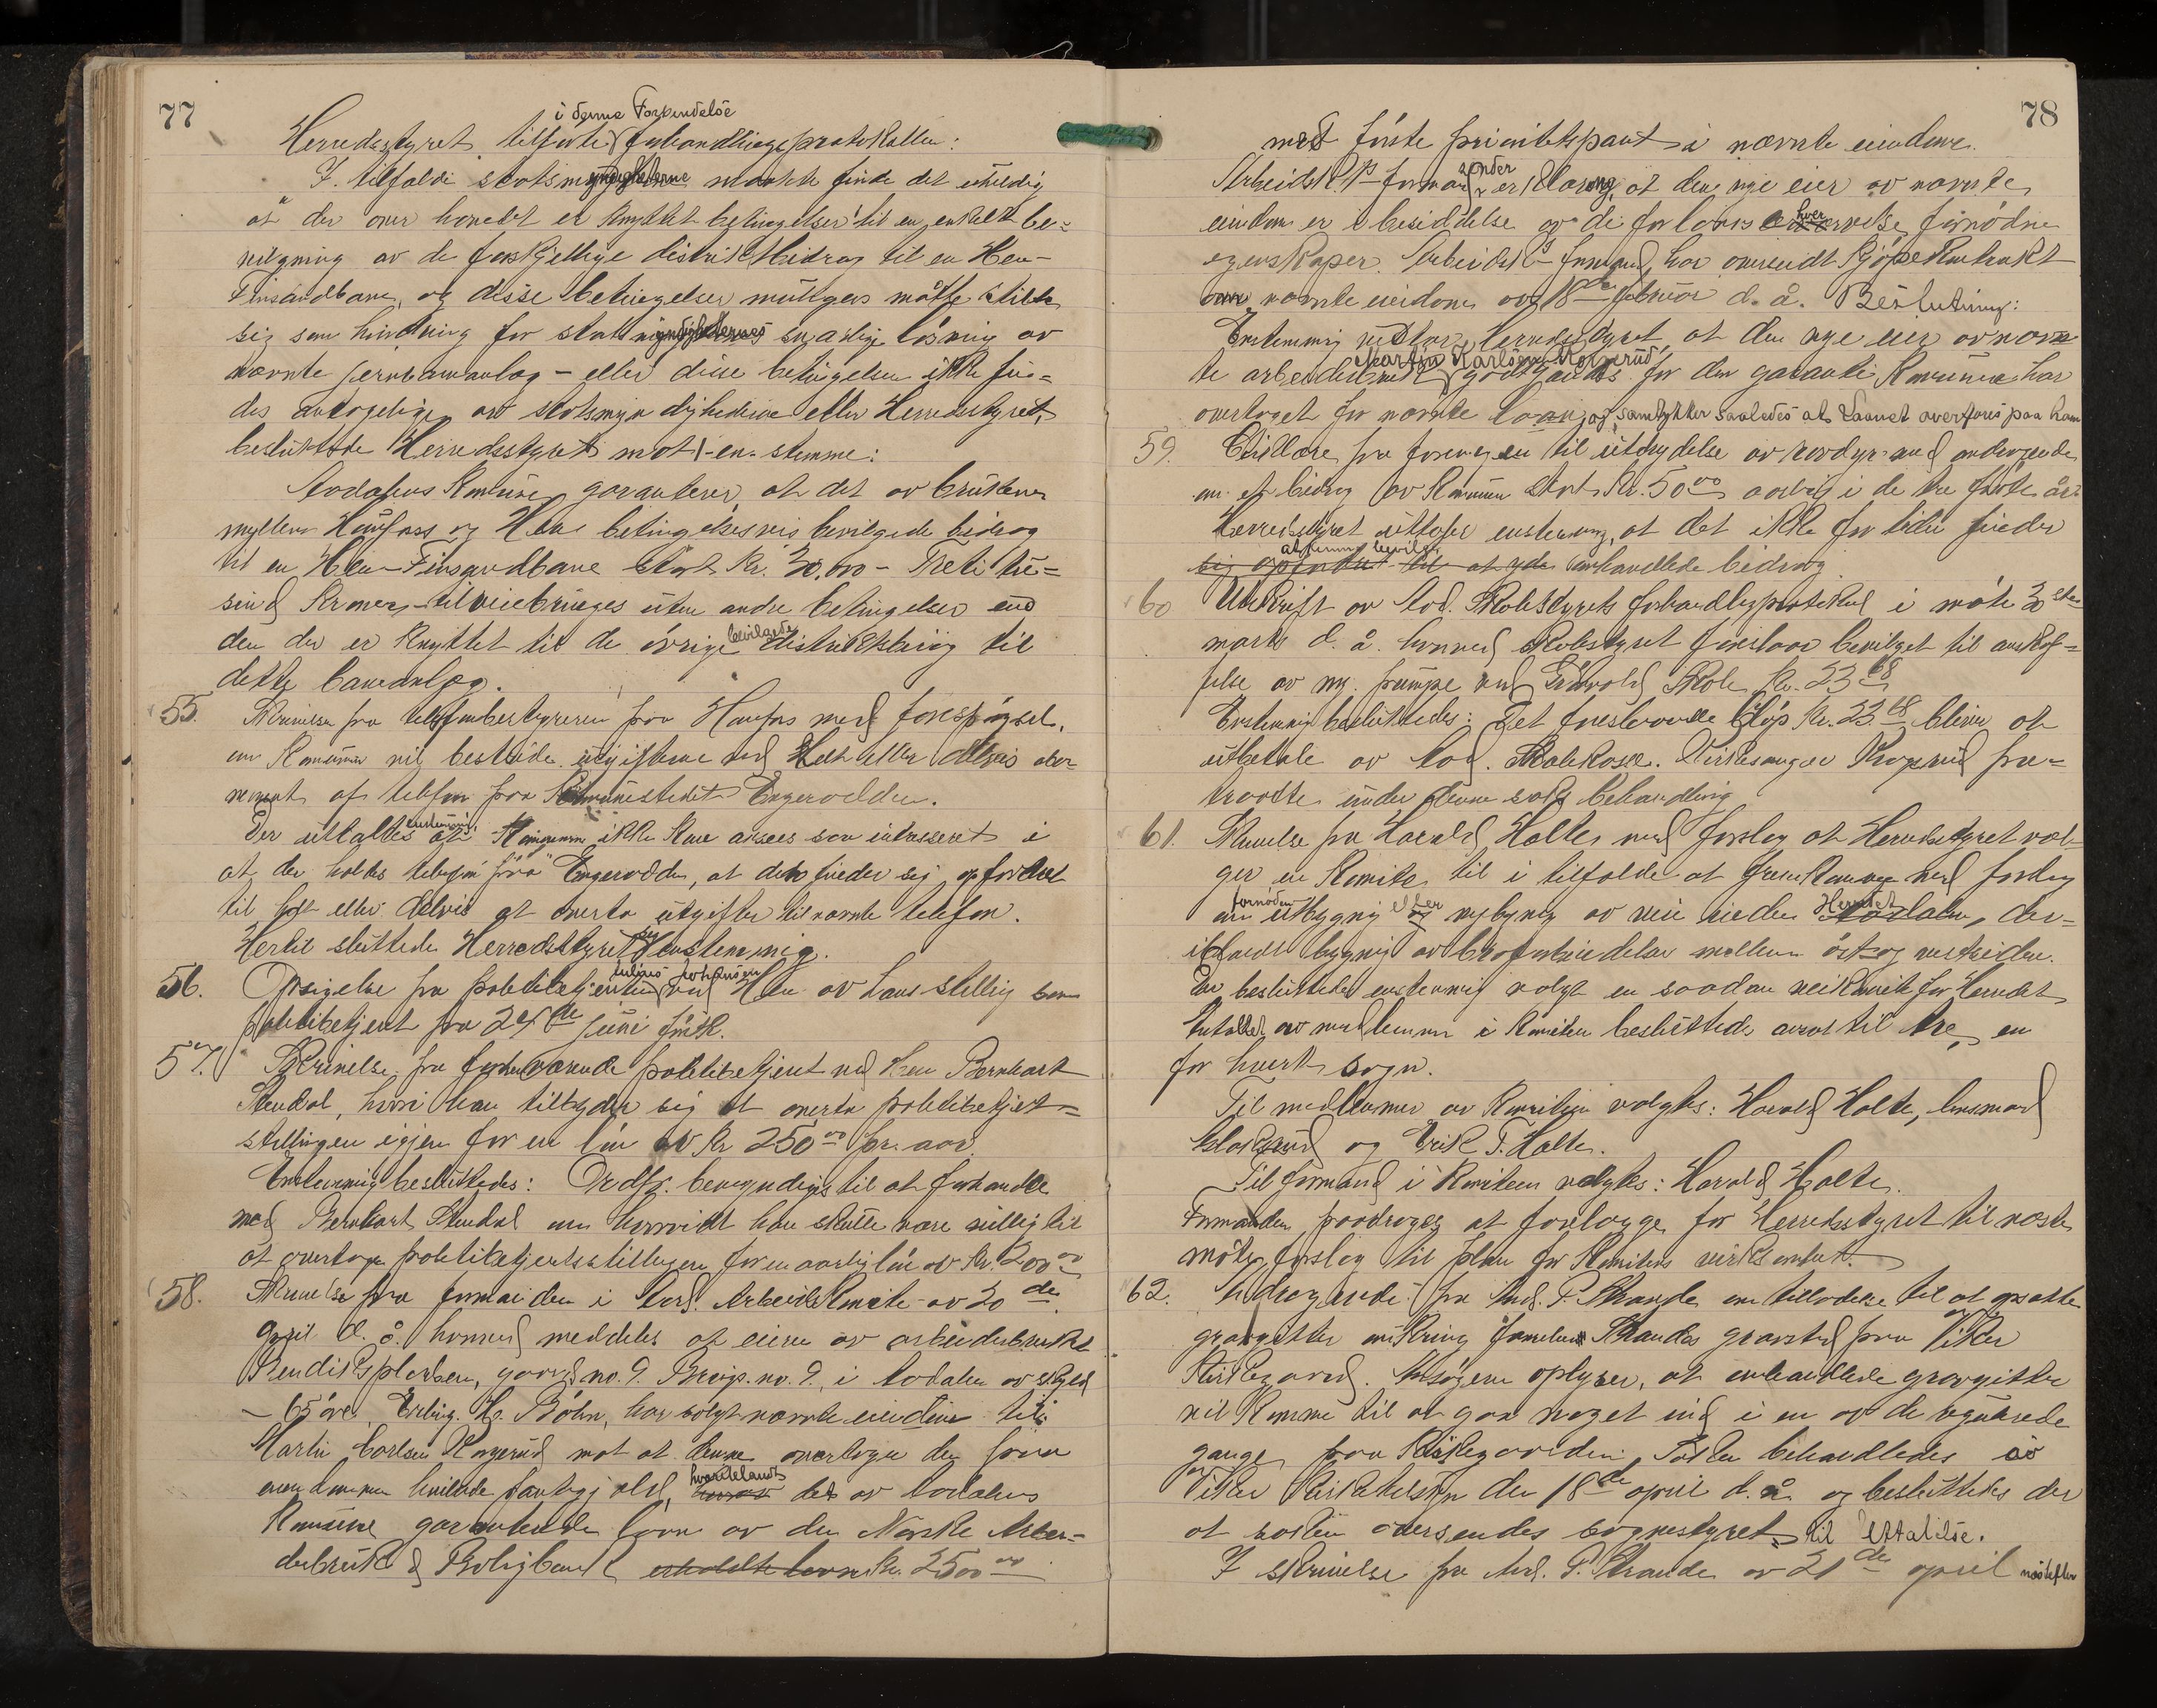 77
i denne Forbindelse
Herredsstyret tilførte forhandlingsprotokollen:
I tilfælde statsmyndigheterne maatte finde det uheldig
at der over hovedet er knyttet betingelser til en enkelt be-
vilgning av de forskjellige distriktsbidrag til en Hen-
Finsandbane, og disse betingelser muligens måtte stille
sig som hindring for statsmyndigheternes snarlige løsning av
nævnte jernbaneanlæg – eller disse betingelser ikke fin-
des antagelige av statsmyndighederne eller Herredsstyret,
besluttede Herredsstyret mot 1 - en - stemme:
Aadalens Kommune garanterer, at det av brukene
mellem Hønefoss og Hen betingelsesvis bevilgede bidrag
til en Hen-Finsandbane stort Kr. 30,000 – Treti tu-
sind Kroner – tilveiebringes uten andre betingelser end
den der er knyttet til de øvrige bevilgede distriktsbidrag til
dette baneanlæg.
55. Skrivelse fra telefonbestyreren paa Hønefos med forespørsel,
om Kommunen vil bestride utgifterne ved helt eller delvis abon-
nement af telefon fra Engerodden.
Der uttaltes enstemmig at Kommunen ikke kan ansees saa interesseret i
at der holdes telefon paa Engerodden, at den finder sig opfordret
til helt eller delvis at overta utgifter til nævnte telefon.
Hertil sluttede Herredsstyret sig enstemmig.
56. Opsigelse fra politibetjenten Julius Johansen ved Hen av hans stilling som
politibetjent fra 24de juni förstk.
57. Skrivelse fra forhenværende politibetjent ved Hen Bernhart
Stendal, hvori han tilbyder sig at overta politibetjent-
stillingen igjen for en løn av Kr 250 00 pr. aar.
Enstemmig besluttedes: Ordf. bemyndiges til at forhandle
med Bernhart Stendal om hvorvidt han skulle være villig til
at overtage politibetjentstillingen for en aarlig løn av Kr. 200 00
58. Skrivelse fra formanden i Aad. Arbeiderkomite av 20de
april d. å. hvorved meddeles at eieren av arbeiderbruket
Bendiksplassen, gaards no. 9. Brugs. no. 9., i Aadalen av skyld
– 65 øre, Erling. H. Bøhn, har solgt nævnte eiendom til
Martin Carlsen Kongerud mot at denne overtager den paa
eiendommen hvilende pantegjæld, hvoriblandt det av Aadalens
Kommune garanterede laan av den Norske Arbei-
derbruk & Boligbank erholdte laan Kr. 2500 00
78
med første prioritetspant i nævnte eiendom.
Arbeidsk.s formand sender erklæring, at den nye eier av nævnte
eiendom er i besiddelse av de for laans erhvervelse fornødne
egenskaper. Arbeidsk.s formand har oversendt kjøpekontrakt
om nævnte eiendom av 18de februar d. å. Beslutning:
Enstemmig vedtar Herredsstyret, at den nye eier av nævn-
te arbeiderbruk Martin Karlsen Kongerud godkjendes for den garanti Kommunen har
overtaget for nævnte laan, og samtykker saaledes at Laanet overføres paa ham
59. Cirkulære fra foreningen til utrydelse av rovdyr med andragende
om et bidrag av Kommunen stort Kr. 50 00 aarlig i de tre første år.
Herredsstyret uttaler enstemmig, at det ikke for tiden finder
at kunne bevilge
sig opfordret til at yde omhandlede bidrag.
60 Utskrift av Aad. Skolestyrets forhandlingsprotokol i møte 30te
marts d. å. hvorved skolestyret foreslaar bevilget til anskaf-
felse av ny. pumpe ved Grøvold Skole Kr. 23 68
Enstemmig besluttedes: Det foreslaaede beløp Kr. 23.68 bliver at
utbetale av Aad. Skolekasse. Kirkesanger Kongerud fra-
traadte under denne saks behandling
61. Skrivelse fra Harald Holte med forslag at Herredsstyret væl-
ger en Komite til i tilfælde at fremkomme med forslag
om fornøden utbygning eller nybygning av veie inden Herredet Aadalen, der-
iblandt bygning av broforbindelse mellem øst og vestsiden.
Der besluttedes enstemmig valgt en saadan veikomite for Herredet
Antallet av medlemmer i Komiteen besluttedes ansat til tre, en
for hvert sogn.
Til medlemmer av Komiteen valgtes: Harald Holte, lensmand
Aslaksrud og Erik T. Holte.
Til formand i Komiteen valgtes: Harald Holte.
Formanden paadroges at forelægge for Herredsstyret til næste
møte forslag til plan for Komiteens virksomhet.
62. Andragende fra And. P. Strande om tilladelse til at opsætte
gravgitter omkring familien Strandes gravsted paa Viker
Kirkegaard. Ansøgeren oplyser, at omhandlede gravgitter
vil komme til at gaa noget ind i en av de regulerede
gange paa Kirkegaarden. Saken behandledes av
Viker Kirketilsyn den 18de april d. å. og besluttedes der
at saken oversendes sognestyret til Uttalelse.
I skrivelse fra And. P. Strande av 21de april næstefter